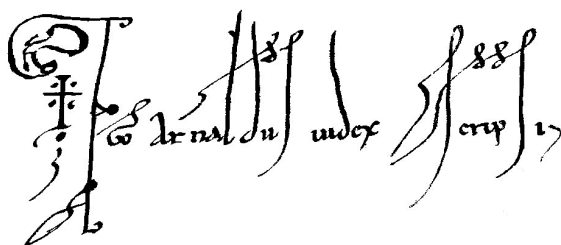 Ego Arnaldus iudex scripsi